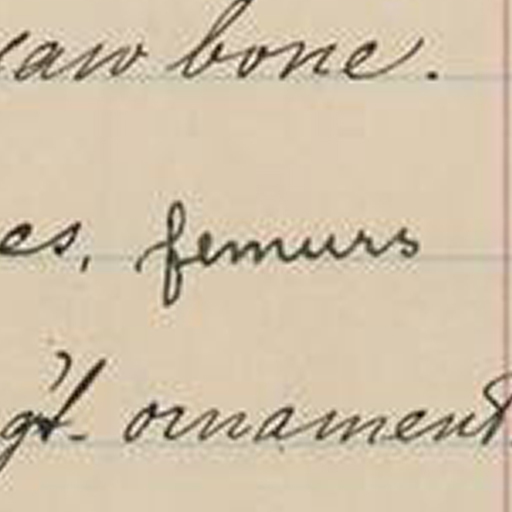 jaw bone.
es, femurs
g't- ornament